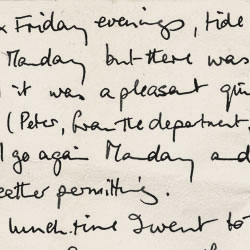 x Friday evenings, tide
Monday but there was
it was a pleasant qui
(Peter, from the department,
l go again Monday and
eather permitting.
lunch-time I went to